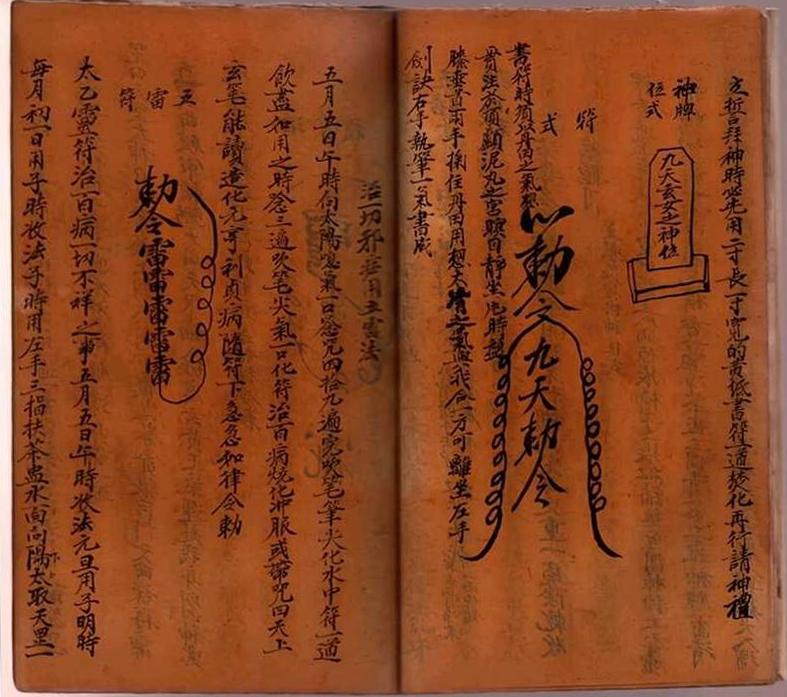 立誓拜神時必先用二寸長一寸寬的黃紙書符一道焚化再行請神禮
神牌
位式
九天玄女之神位
符
式
敕令九天敕令
書符時須以丹田之氣想
貫注於頂顖泥丸之宮瞑目靜坐片時盤
膝垂首兩手按住丹田用想天清之氣與我合一方可離坐左手
劍訣右手執筆一氣書成
治一切邪症用五雷法
五月五日午時向太陽吸氣一口念咒四拾九遍完吹筆筆尖化水中符一道
飲盡如用之時念三遍吹筆尖氣一口化符治百病燒化沖服或帶咒曰天上
玄筆能讀造化元亨利貞病隨符下急急如律令敕
五
雷
符
敕令雷雷雷雷雷
太乙靈符治一百病一切不祥之事五月五日午時收法元旦用子明時
每月初一日用子時收法子時用左手三指扶茶盅水面向陽太取天罡一